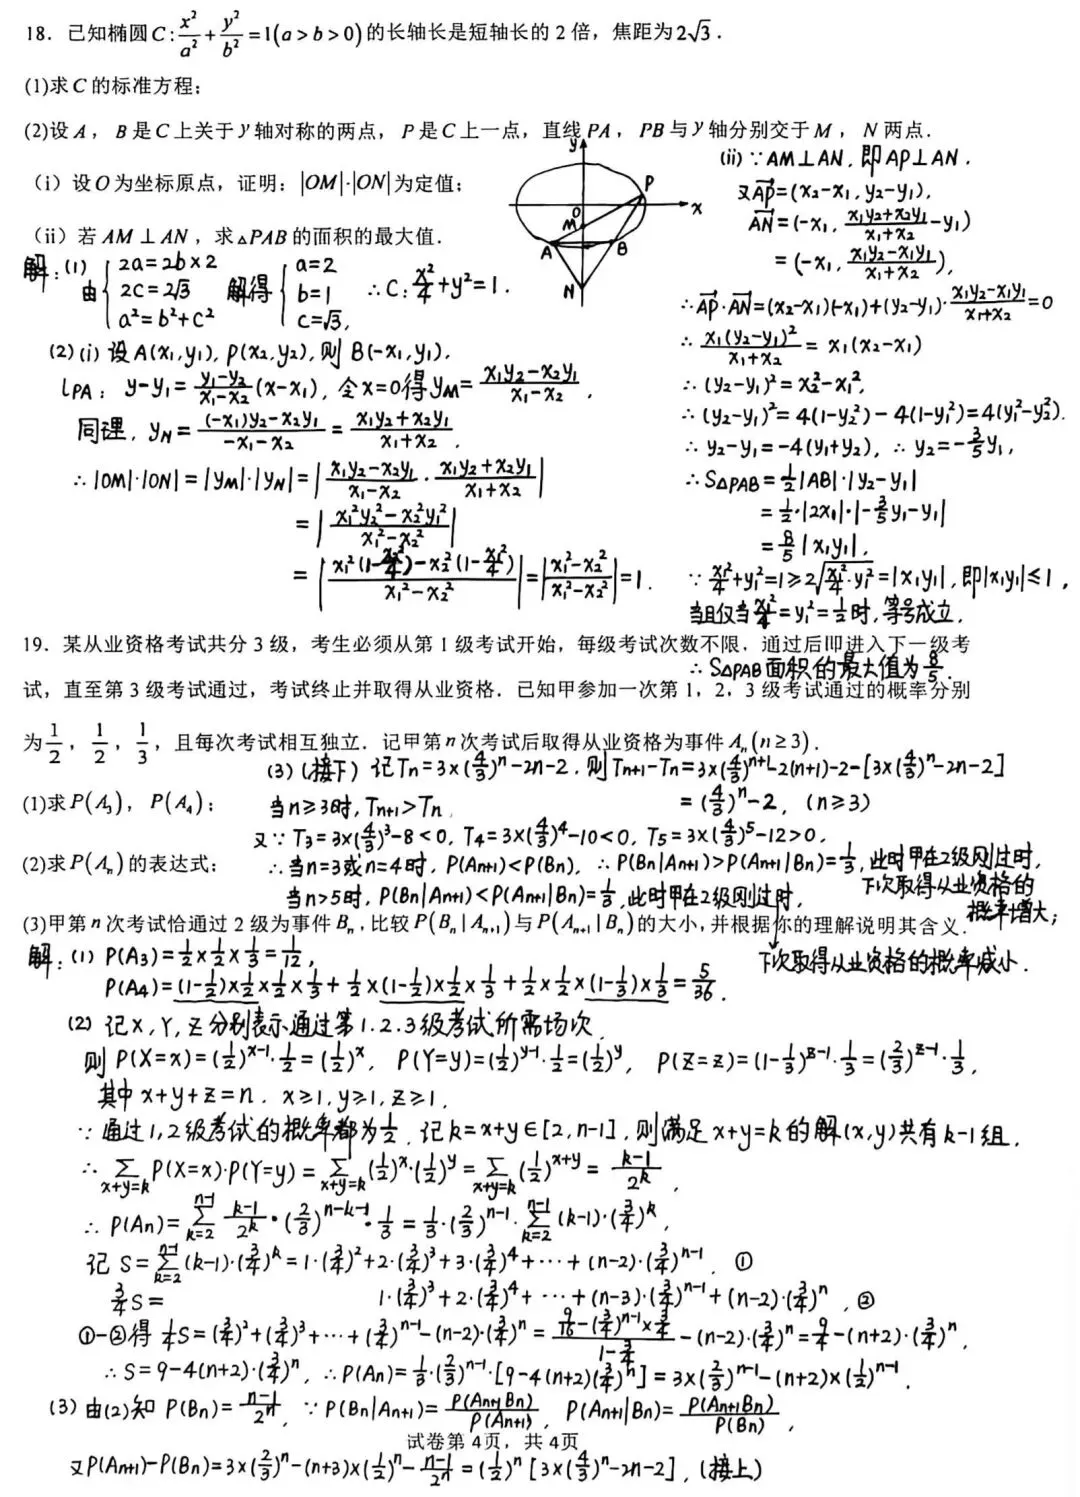 18. 已知椭圆C:x²/a²+y²/b²=1(a>b>0)的长轴长是短轴长的2倍，焦距为2√3.
(1)求C的标准方程；
(2)设A，B是C上关于y轴对称的两点，P是C上一点，直线PA，PB与y轴分别交于M，N两点.
（i）设O为坐标原点，证明：|OM|·|ON|为定值；
（ii）若AM⊥AN，求△PAB的面积的最大值.
y
P
O
x
M
A
B
N
解：(1)由{2a=2b×2
2c=2√3
a²=b²+c²
解得{a=2
b=1
c=√3,
∴C:x²/4+y²=1.
(2)(i)设A(x₁,y₁), P(x₂,y₂),则B(-x₁,y₁).
l_PA: y-y₁=(y₁-y₂)/(x₁-x₂)(x-x₁), 令x=0得y_M=(x₁y₂-x₂y₁)/(x₁-x₂),
同理, y_N=((-x₁)y₂-x₂y₁)/(-x₁-x₂)=(x₁y₂+x₂y₁)/(x₁+x₂).
∴|OM|·|ON|=|y_M|·|y_N|=|(x₁y₂-x₂y₁)/(x₁-x₂)·(x₁y₂+x₂y₁)/(x₁+x₂)|
=|(x₁²y₂²-x₂²y₁²)/(x₁²-x₂²)|
=|(x₁²(1-x₂²/4)-x₂²(1-x₁²/4))/(x₁²-x₂²)|=|(x₁²-x₂²)/(x₁²-x₂²)|=1.
(ii)∵AM⊥AN,即AP⊥AN.
又AP=(x₂-x₁,y₂-y₁),
AN=(-x₁,(x₁y₂+x₂y₁)/(x₁+x₂)-y₁)
=(-x₁,(x₁y₂-x₁y₁)/(x₁+x₂)),
∴AP·AN=(x₂-x₁)(-x₁)+(y₂-y₁)·(x₁y₂-x₁y₁)/(x₁+x₂)=0
∴x₁(y₂-y₁)²/(x₁+x₂)=x₁(x₂-x₁)
∴(y₂-y₁)²=x₂²-x₁²,
∴(y₂-y₁)²=4(1-y₂²)-4(1-y₁²)=4(y₁²-y₂²).
∴y₂-y₁=-4(y₁+y₂), ∴y₂=-3/5y₁,
∴S△PAB=1/2|AB|·|y₂-y₁|
=1/2·|2x₁|·|-3/5y₁-y₁|
=8/5|x₁y₁|,
∵x₁²/4+y₁²=1≥2√(x₁²/4·y₁²)=|x₁y₁|,即|x₁y₁|≤1,
当且仅当x₁²/4=y₁²=1/2时,等号成立.
∴S△PAB面积的最大值为8/5.
19. 某从业资格考试共分3级，考生必须从第1级考试开始，每级考试次数不限，通过后即进入下一级考
试，直至第3级考试通过，考试终止并取得从业资格. 已知甲参加一次第1，2，3级考试通过的概率分别
为1/2，1/2，1/3，且每次考试相互独立. 记甲第n次考试后取得从业资格为事件Aₙ(n≥3).
(1)求P(A₃)，P(A₄)；
(2)求P(Aₙ)的表达式；
(3)甲第n次考试恰通过2级为事件Bₙ,比较P(Bₙ|Aₙ₊₁)与P(Aₙ₊₁|Bₙ)的大小,并根据你的理解说明其含义.
(3)(接下)记Tn=3×(4/3)ⁿ-2n-2.则Tn+1-Tn=3×(4/3)ⁿ⁺¹-2(n+1)-2-[3×(4/3)ⁿ-2n-2]
=(4/3)ⁿ-2, (n≥3)
当n≥3时,Tn+1>Tn,
又∵T₃=3×(4/3)³-8<0, T₄=3×(4/3)⁴-10<0, T₅=3×(4/3)⁵-12>0,
∴当n=3或n=4时, P(An+1)<P(Bn), ∴P(Bn|An+1)>P(An+1|Bn)=1/3,此时甲在2级刚过时,
下次取得从业资格的
概率增大;
当n>5时, P(Bn|An+1)<P(An+1|Bn)=1/3,此时甲在2级刚过时,
下次取得从业资格的概率减小.
解:(1)P(A₃)=1/2×1/2×1/3=1/12,
P(A₄)=(1-1/2)×1/2×1/2×1/3+1/2×(1-1/2)×1/2×1/3+1/2×1/2×(1-1/3)×1/3=5/36.
(2)记X,Y,Z分别表示通过第1.2.3级考试所需场次
则P(X=x)=(1/2)ˣ⁻¹·1/2=(1/2)ˣ, P(Y=y)=(1/2)ʸ⁻¹·1/2=(1/2)ʸ, P(Z=z)=(1-1/3)ᶻ⁻¹·1/3=(2/3)ᶻ⁻¹·1/3,
其中x+y+z=n. x≥1,y≥1,z≥1.
∵通过1,2级考试的概率都为1/2,记k=x+y∈[2,n-1],则满足x+y=k的解(x,y)共有k-1组.
∴∑_{x+y=k}P(X=x)·P(Y=y)=∑_{x+y=k}(1/2)ˣ·(1/2)ʸ=∑_{x+y=k}(1/2)ˣ⁺ʸ=(k-1)/2ᵏ,
∴P(An)=∑_{k=2}^{n-1}(k-1)/2ᵏ·(2/3)ⁿ⁻ᵏ⁻¹·1/3=1/3·(2/3)ⁿ⁻¹·∑_{k=2}^{n-1}(k-1)·(3/4)ᵏ,
记S=∑_{k=2}^{n-1}(k-1)·(3/4)ᵏ=1·(3/4)²+2·(3/4)³+3·(3/4)⁴+⋯+(n-2)·(3/4)ⁿ⁻¹. ①
3/4S= 1·(3/4)³+2·(3/4)⁴+⋯+(n-3)·(3/4)ⁿ⁻¹+(n-2)·(3/4)ⁿ, ②
①-②得1/4S=(3/4)²+(3/4)³+⋯+(3/4)ⁿ⁻¹-(n-2)·(3/4)ⁿ=(9/16-(3/4)ⁿ⁻¹×3/4)/(1-3/4)-(n-2)·(3/4)ⁿ=9/4-(n+2)·(3/4)ⁿ,
∴S=9-4(n+2)·(3/4)ⁿ, ∴P(An)=1/3·(2/3)ⁿ⁻¹·[9-4(n+2)(3/4)ⁿ]=3×(2/3)ⁿ⁻¹-(n+2)×(1/2)ⁿ⁻¹.
(3)由(2)知P(Bn)=(n-1)/2ⁿ, ∵P(Bn|An+1)=P(An+1Bn)/P(An+1), P(An+1|Bn)=P(An+1Bn)/P(Bn),
试卷第4页，共4页
又P(An+1)-P(Bn)=3×(2/3)ⁿ-(n+3)×(1/2)ⁿ-(n-1)/2ⁿ=(1/2)ⁿ[3×(4/3)ⁿ-2n-2], (接上)